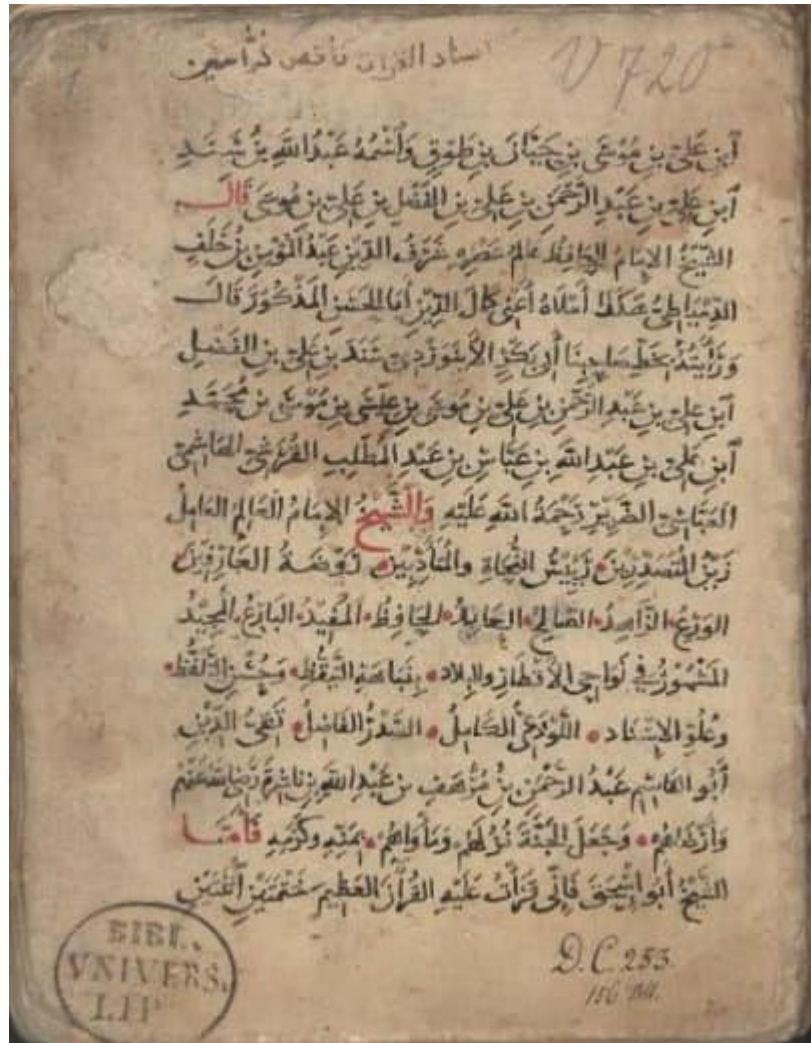 اسناد القرات ناقص كراسين
V 720
ابن علي بن موسى بن حيان بن طوق واسمه عبد الله بن
ابن علي بن عبد الرحمن بن علي بن الفضل بن علي بن موسى قال
الشيخ الامام الحافظ عالم عصره شرف الدين عبد المومن بن خلف
الدمياطي هكذا املاه أعني كمال الدين أبا الحسن المذكور قال
ورأيته بخط صاحبنا أبي بكر الأبيوردي بن علي بن الفضل
ابن علي بن عبد الرحمن بن علي بن موسى بن عيسى بن موسى بن محمد
ابن علي بن عبد الله بن عباس بن عبد المطلب القرشي الهاشمي
العباسي الضرير رحمة الله عليه والشيخ الامام العالم العامل
زين المتصدرين رئيس النحاة والمتأدبين روضة العارفين
الورع الزاهد الصالح العابد الحافظ المفيد البارع المجيد
المشهور في نواحي الأقطار والبلاد بنباهة التيقظ وحسن التلفظ
وعلو الإسناد الكامل الصدر الفاضل تقي الدين
أبو القاسم عبد الرحمن بن مرهف بن عبد الله بن ناشرة رضي الله عنهم
وأرضاهم وجعل الجنة نزلهم ومأواهم بمنه وكرمه فأما
الشيخ أبو إسحق فاني قرأت عليه القرآن العظيم ختمتين اثنتين
BIBL.
VNIVERS.
LIP
D.C. 253.